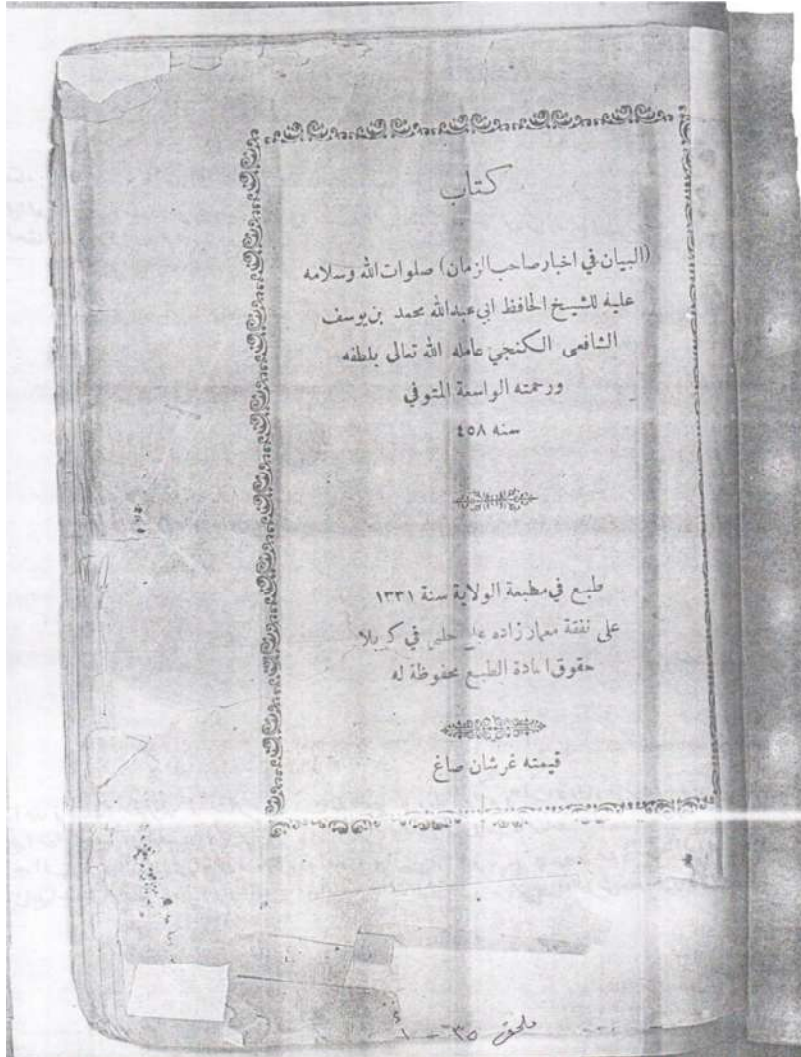 كتاب
(البيان في اخبار صاحب الزمان) صلوات الله وسلامه
عليه للشيخ الحافظ ابي عبدالله محمد بن يوسف
الشافعي الكنجي عامله الله تعالى بلطفه
ورحمته الواسعة المتوفي
سنه ٤٥٨
طبع في مطبعة الولاية سنة ١٣٣١
على نفقة معمار زاده علي حلمي في كربلا
حقوق اعادة الطبع محفوظة له
قيمته غرشان صاغ
ملحق ٣٥ - أ